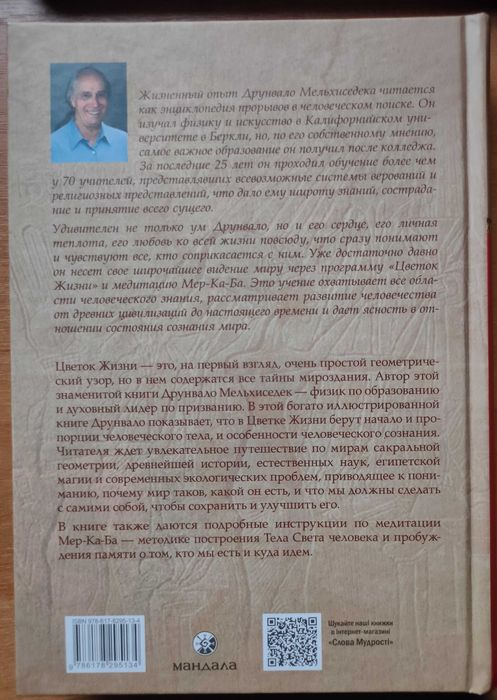 Жизненный опыт Друнвало Мельхиседека читается
как энциклопедия прорывов в человеческом поиске. Он
изучал физику и искусство в Калифорнийском уни-
верситете в Беркли, но, по его собственному мнению,
самое важное образование он получил после колледжа.
За последние 25 лет он проходил обучение более чем
у 70 учителей, представлявших всевозможные системы верований и
религиозных представлений, что дало ему широту знаний, сострада-
ние и принятие всего сущего.
Удивителен не только ум Друнвало, но и его сердце, его личная
теплота, его любовь ко всей жизни повсюду, что сразу понимают
и чувствуют все, кто соприкасается с ним. Уже достаточно давно
он несет свое широчайшее видение миру через программу «Цветок
Жизни» и медитацию Мер-Ка-Ба. Это учение охватывает все обла-
сти человеческого знания, рассматривает развитие человечества
от древних цивилизаций до настоящего времени и дает ясность в от-
ношении состояния сознания мира.
Цветок Жизни — это, на первый взгляд, очень простой геометриче-
ский узор, но в нем содержатся все тайны мироздания. Автор этой
знаменитой книги Друнвало Мельхиседек — физик по образованию
и духовный лидер по призванию. В этой богато иллюстрированной
книге Друнвало показывает, что в Цветке Жизни берут начало и про-
порции человеческого тела, и особенности человеческого сознания.
Читателя ждет увлекательное путешествие по мирам сакральной
геометрии, древнейшей истории, естественных наук, египетской
магии и современных экологических проблем, приводящее к пони-
манию, почему мир таков, какой он есть, и что мы должны сделать
с самими собой, чтобы сохранить и улучшить его.
В книге также даются подробные инструкции по медитации
Мер-Ка-Ба — методике построения Тела Света человека и пробуж-
дения памяти о том, кто мы есть и куда идем.
ISBN 978-617-8295-13-4
9 786178 295134
МАНДАЛА
Шукайте наші книжки
в інтернет-магазині
«Слова Мудрості»